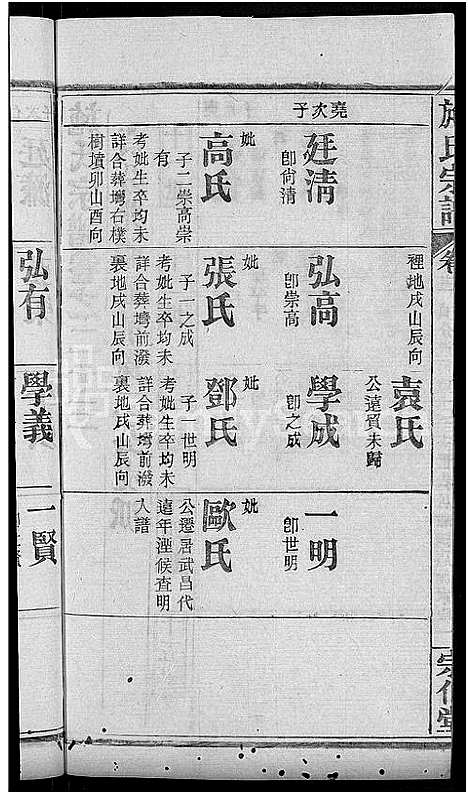 施氏宗譜
卷
宗仁堂
裡地戌山辰向
袁氏
公遠貿未歸
堯次子
廷清
卽尙清
妣
高氏
子二崇高崇
有
考妣生卒均未
詳合葬塆右樸
樹墳卯山酉向
弘高
卽崇高
妣
張氏
子一之成
考妣生卒均未
詳合葬塆前潑
裏地戌山辰向
學成
卽之成
妣
鄧氏
子一世明
考妣生卒均未
詳合葬塆前潑
裏地戌山辰向
一明
卽世明
妣
歐氏
公遷居武昌代
遠年湮候查明
入譜
弘有
學義
一賢